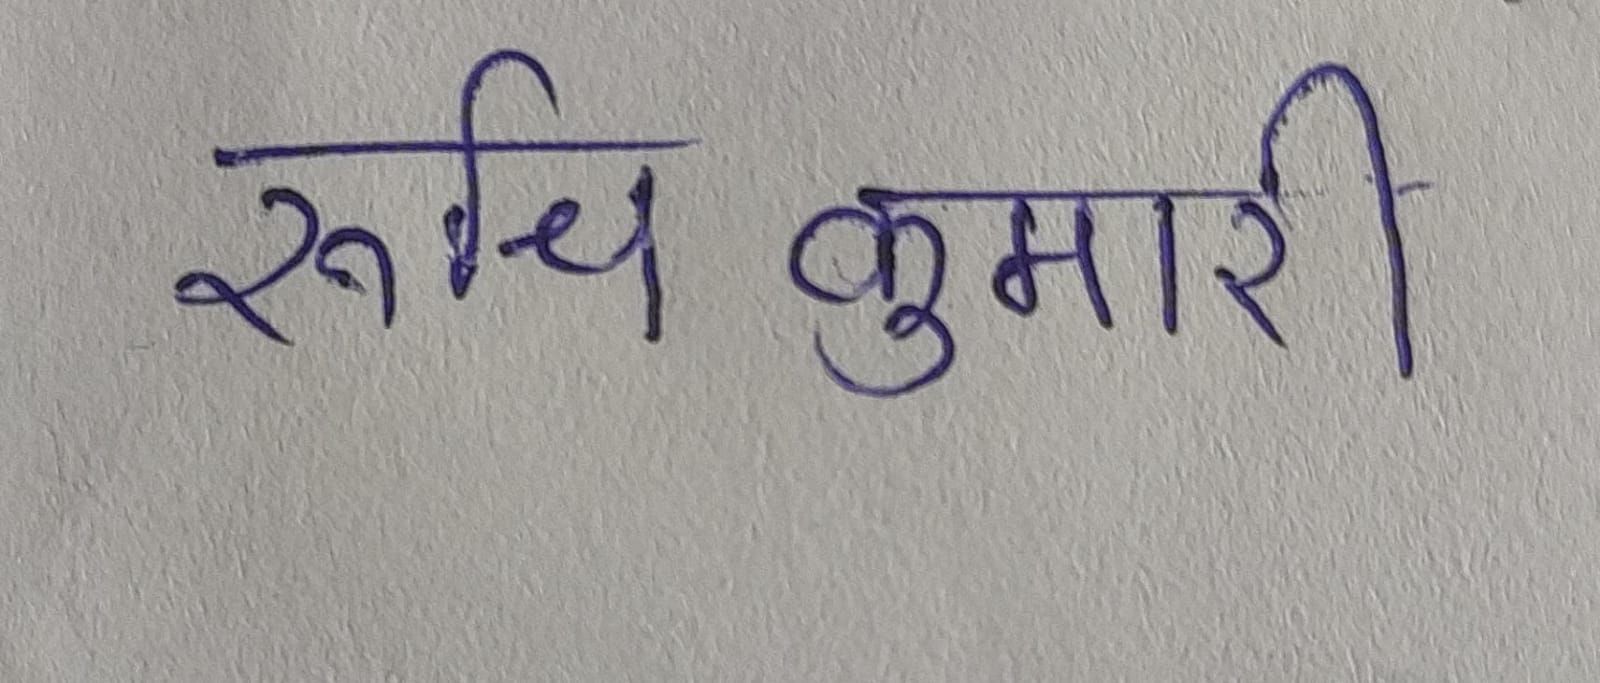 रूचि कुमारी